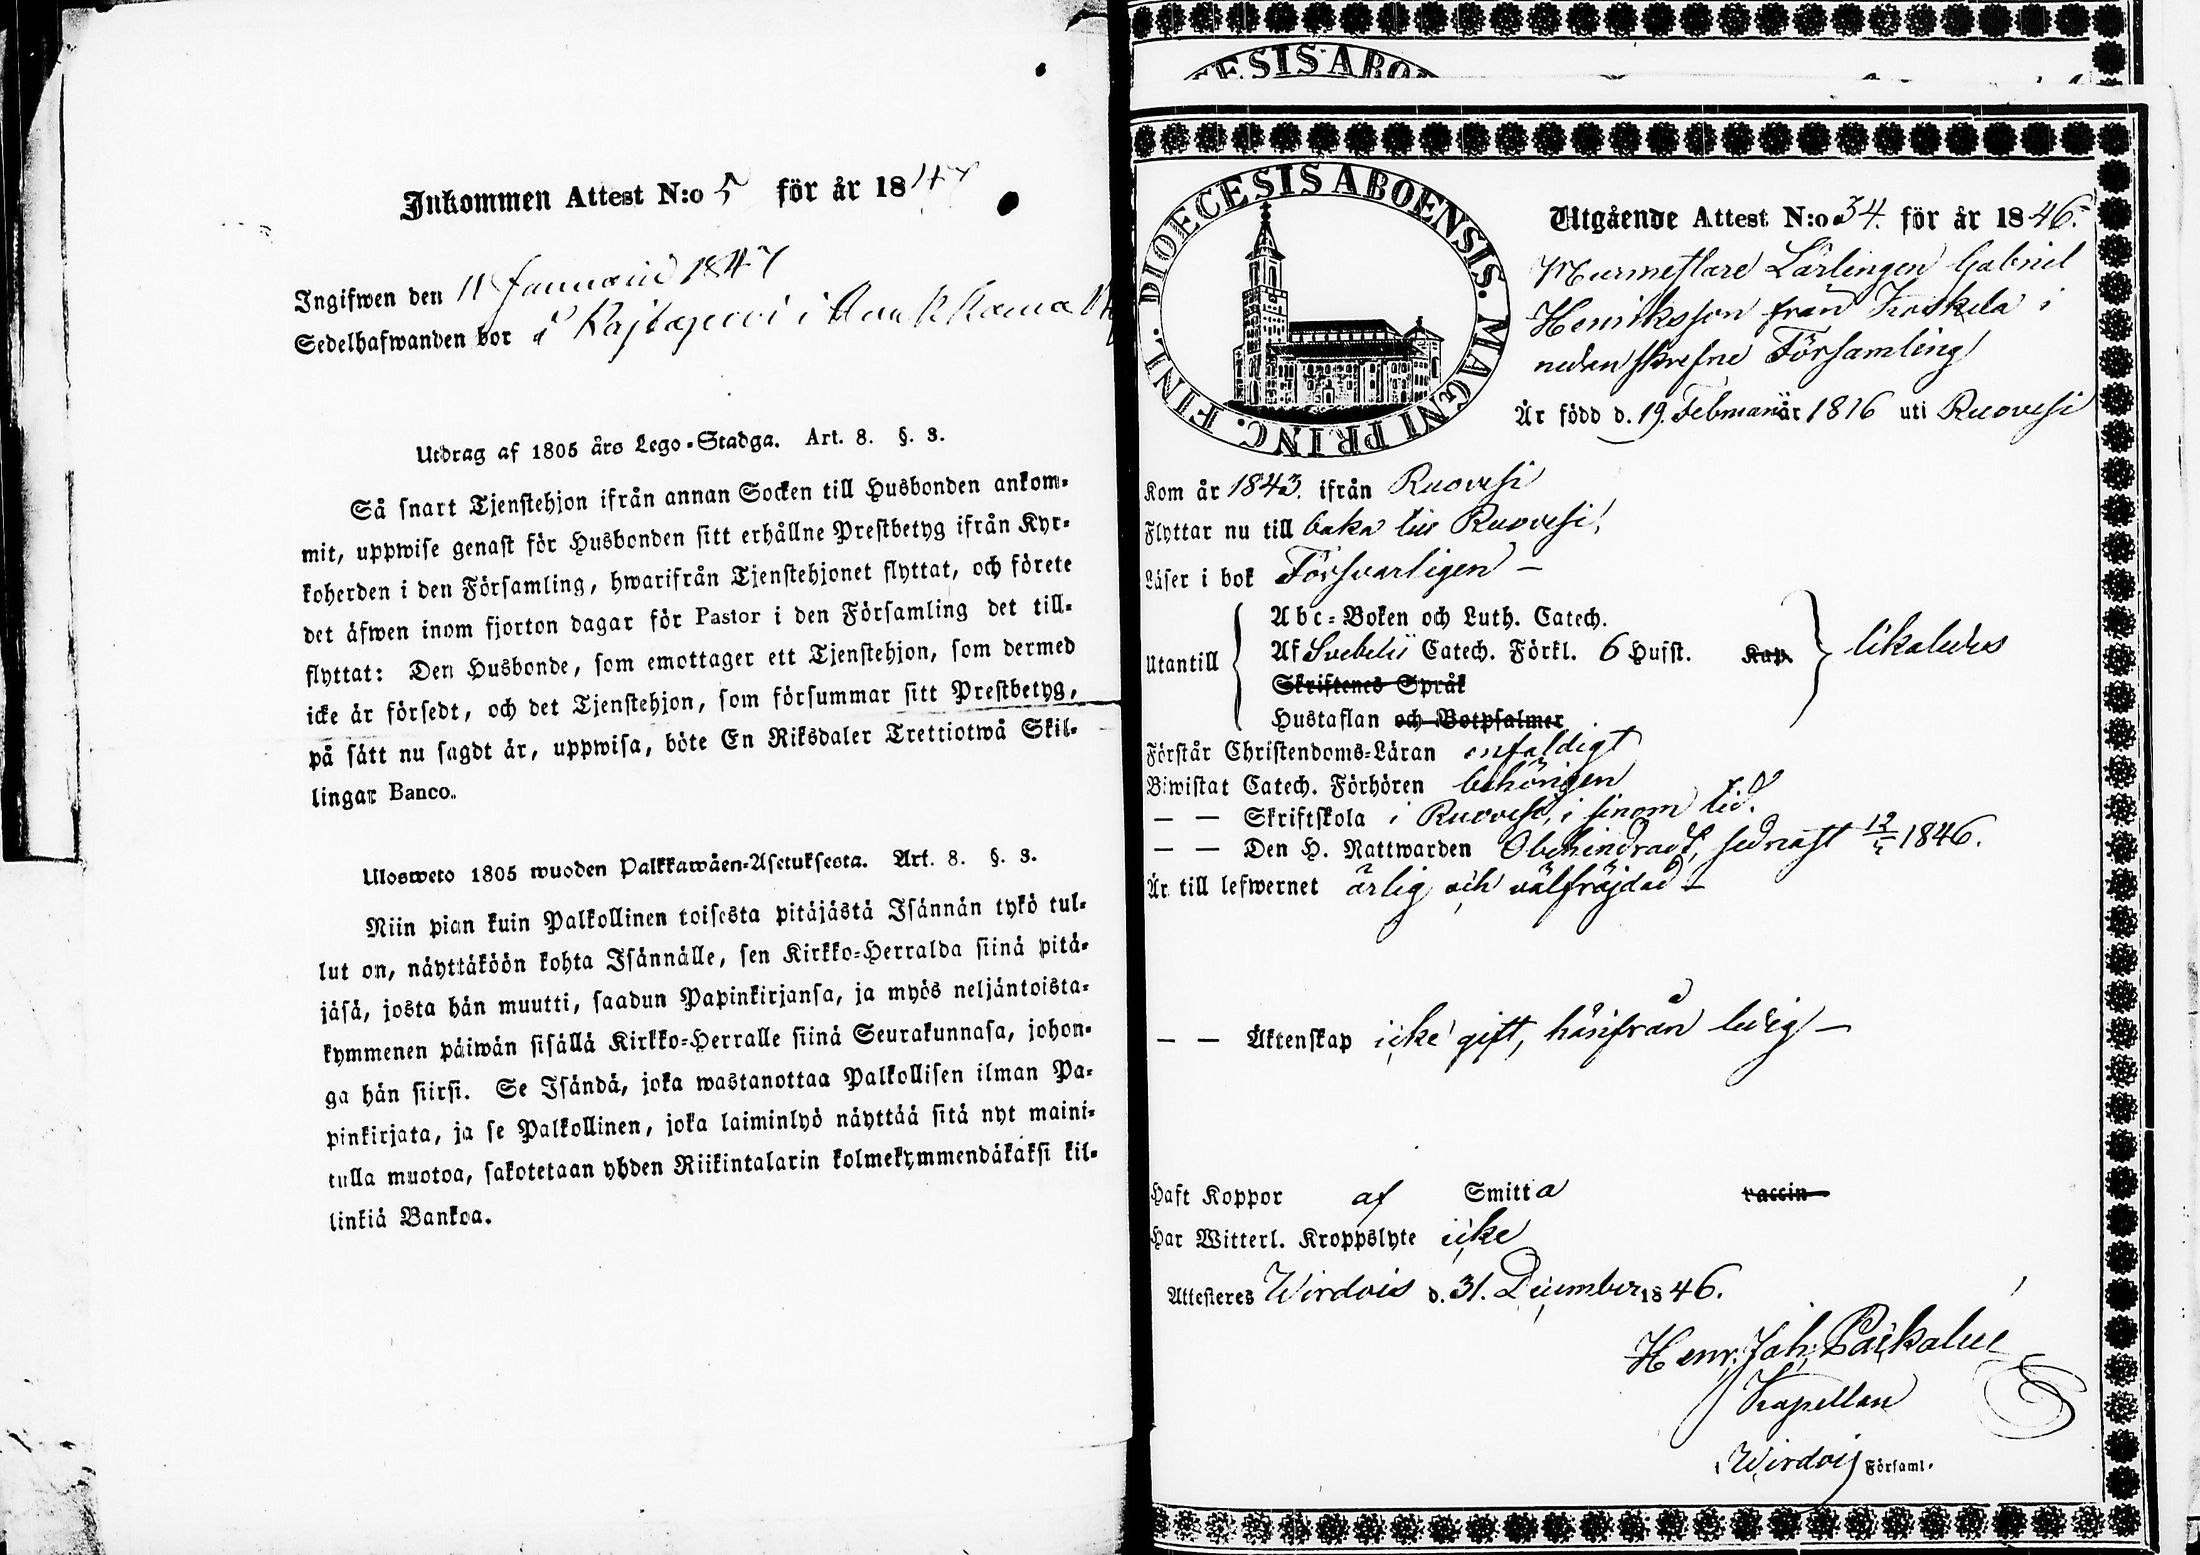 Inkommen Attest N:o 5 för år 1847
Ingifwen den 11 Januarii 1847
Sedelhafwanden bor å
Utdrag af 1805 års Lego-Stadga. Art. 8. §. 3.
Så snart Tjenstehjon ifrån annan Socken till Husbonden ankom-
mit, uppwise genast för Husbonden sitt erhållne Prestbetyg ifrån Kyr-
koherden i den Församling, hwarifrån Tjenstehjonet flyttat, och förete
det äfwen inom fjorton dagar för Pastor i den Församling det till-
flyttat: Den Husbonde, som emottager ett Tjenstehjon, som dermed
icke är försedt, och det Tjenstehjon, som försummar sitt Prestbetyg,
på sätt nu sagdt är, uppwisa, böte En Riksdaler Trettiotwå Skil-
lingar Banco.
Ulosweto 1805 wuoden Palkkawäen-Asetuksesta. Art. 8. §. 3.
Niin pian kuin Palkollinen toisesta pitäjästä Isännän tykö tul-
lut on, näyttäköön kohta Isännälle, sen Kirkko-Herralda siinä pitä-
jäsä, josta hän muutti, saadun Papinkirjansa, ja myös neljäntoista-
kymmenen päiwän sisällä Kirkko-Herralle siinä Seurakunnasa, johon-
ga hän siirsi. Se Isändä, joka wastanottaa Palkollisen ilman Pa-
pinkirjata, ja se Palkollinen, joka laiminlyö näyttää sitä nyt maini-
tulla muotoa, sakotetaan yhden Riikintalarin kolmekymmendäkaksi kil-
linkiä Bankoa.
ESIS ABO
DIOECESIS ABOENSIS. MAGNI PRINC. FINL.
Utgående Attest N:o 34. för år 1846.
Murmestare Lärlingen Gabriel
Henriksson från Koskela i
nedanskrefne Församling
Är född d. 19. Februarii år 1816 uti Ruovesi
Kom år 1843. ifrån Ruovesi
Flyttar nu till baka till Ruovesi,
Läser i bok Försvarligen –
Utantill
Abc-Boken och Luth. Catech.
Af Svebelii Catech. Förkl. 6 Hufst. Kap.
Skriftenes Språk
Hustaflan och Botpsalmer
likaledes
Förstår Christendoms-Läran enfaldigt
Biwistat Catech. Förhören behörigen
— — Skriftskola i Ruovesi, i sinom tid.
— — Den H. Nattwarden Obehindrad, sednast 1846.
Är till lefwernet ärlig och välfräjdad –
— — Äktenskap icke gift, härifrån ledig –
Haft Koppor af Smitta vaccin
Har Witterl. Kroppslyte icke
Attesteres Wirdois d. 31. December 1846.
Henr. Joh.
Kapellan
i Wirdois Församl.